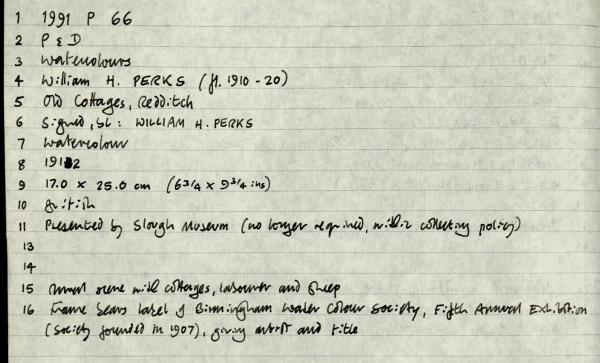 1 1991 P 66
2 P & D
3 Watercolours
4 William H. PERKS (fl. 1910-20)
5 Old Cottages, Redditch
6 Signed, bl: WILLIAM H. PERKS
7 Watercolour
8 1912
9 17.0 x 25.0 cm (6 3/4 x 9 3/4 ins)
10 British
11 Presented by Slough Museum (no longer required, within collecting policy)
13
14
15 Rural scene with cottages, labourer and sheep
16 Frame bears label of Birmingham Water Colour Society, Fifth Annual Exhibition
(Society founded in 1907), giving artist and title